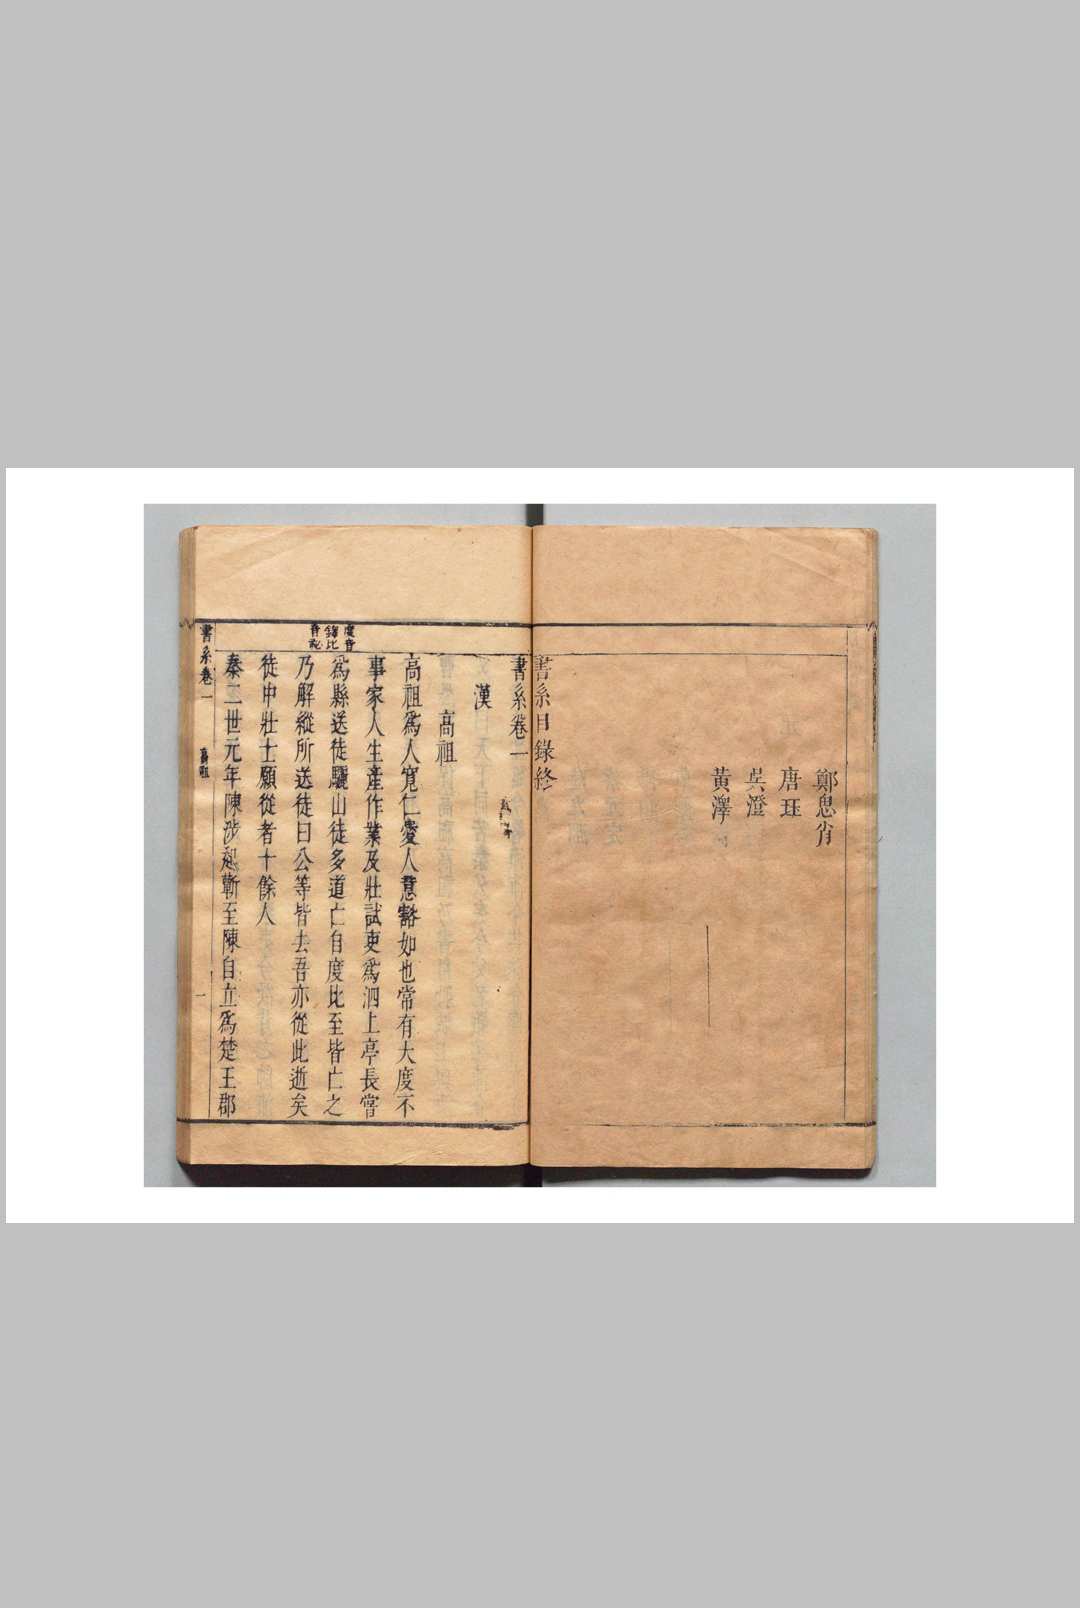 鄭思肖
唐珏
吳澄
黃澤
書系目錄終
書系卷一
漢
高祖
高祖爲人寬仁愛人意豁如也常有大度不
事家人生產作業及壯試吏爲泗上亭長嘗
爲縣送徒驪山徒多道亡自度比至皆亡之
乃解縱所送徒曰公等皆去吾亦從此逝矣
徒中壯士願從者十餘人
秦二世元年陳涉起蘄至陳自立爲楚王郡
度音
鐸比
音祕
書系卷一
高祖
一